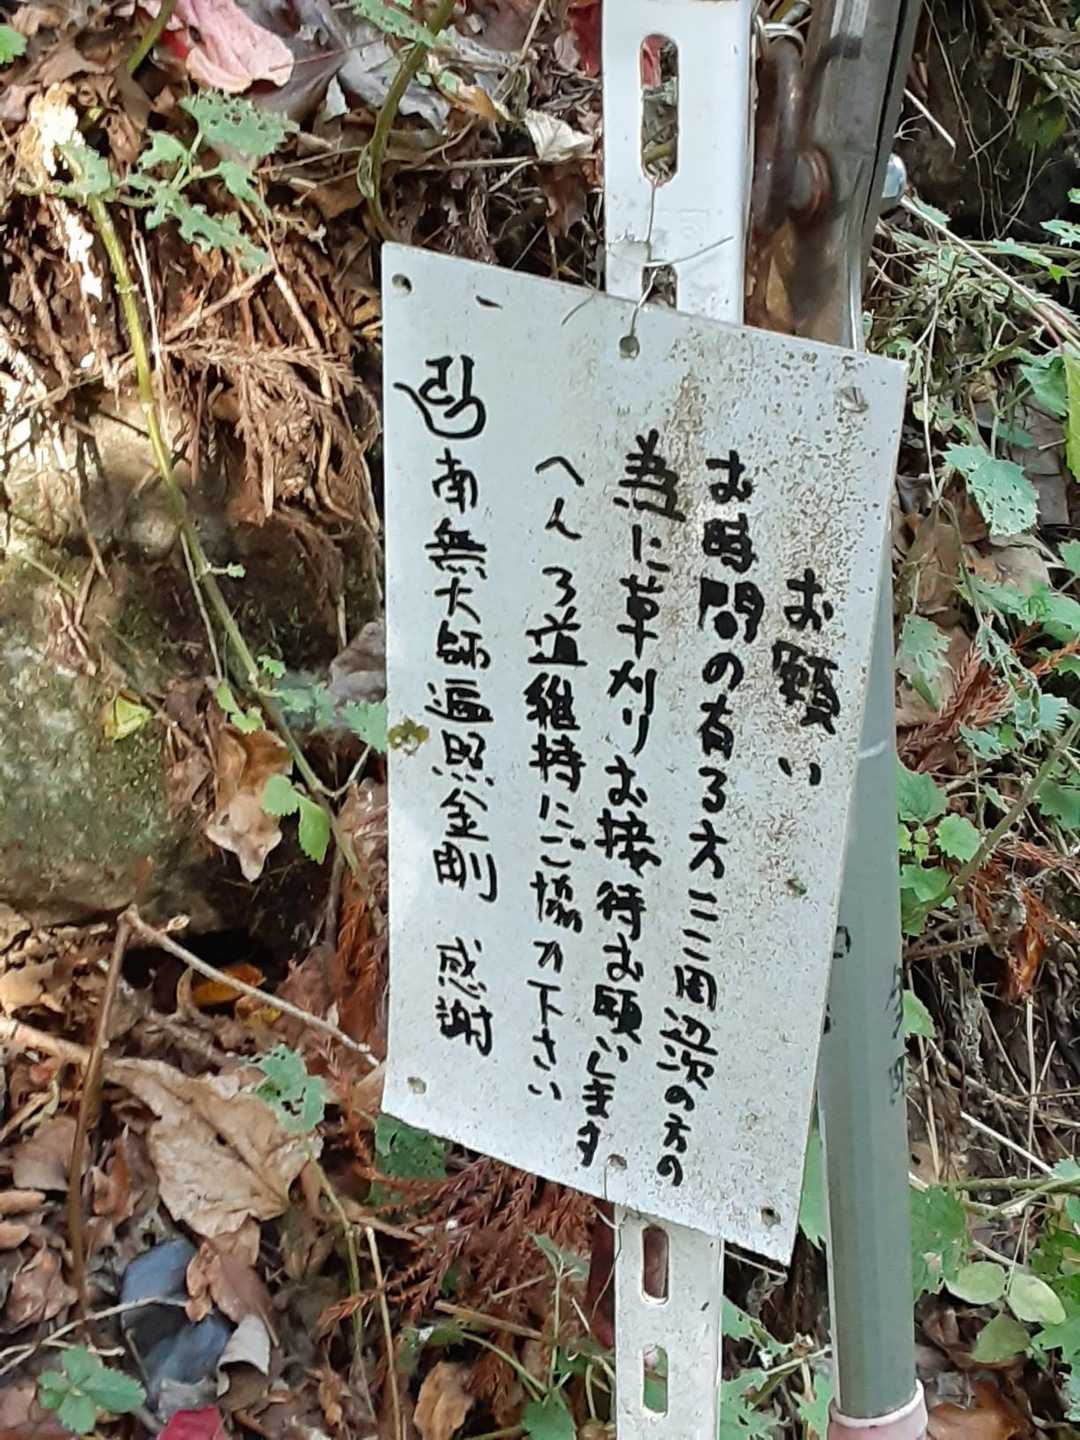 お願い
お時間の有る方ここ周辺次の方の
為に草刈りお接待お願いします
へんろ道維持にご協力下さい
南無大師遍照金剛 感謝